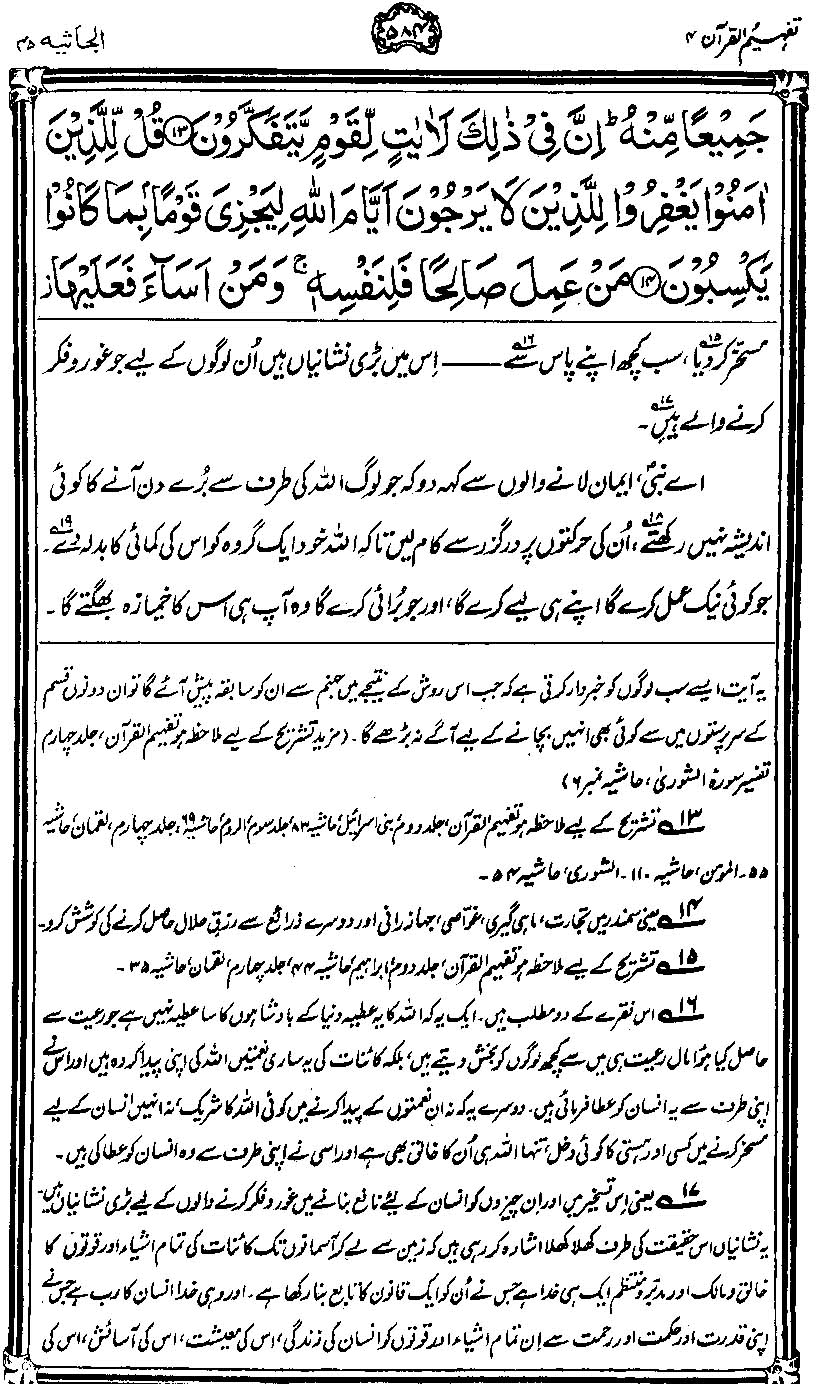 تفہیم القرآن ۴
۵۸۴
الجاثیہ ۴۵
جَمِيْعًا مِّنْهُ ؕ اِنَّ فِيْ ذٰلِكَ لَاٰيٰتٍ لِّقَوْمٍ يَّتَفَكَّرُوْنَ ۝۱۳ قُلْ لِّلَّذِيْنَ
اٰمَنُوْا يَغْفِرُوْا لِلَّذِيْنَ لَا يَرْجُوْنَ اَيَّامَ اللّٰهِ لِيَجْزِيَ قَوْمًۢا بِمَا كَانُوْا
يَكْسِبُوْنَ ۝۱۴ مَنْ عَمِلَ صَالِحًا فَلِنَفْسِهٖ ۚ وَمَنْ اَسَآءَ فَعَلَيْهَا ز
مسخر کر دیا،۱۵ سب کچھ اپنے پاس سے۱۶ ——— اِس میں بڑی نشانیاں ہیں اُن لوگوں کے لیے جو غور و فکر
کرنے والے ہیں۱۷۔
اے نبیؐ، ایمان لانے والوں سے کہہ دو کہ جو لوگ اللہ کی طرف سے بُرے دن آنے کا کوئی
اندیشہ نہیں رکھتے،۱۸ اُن کی حرکتوں پر درگزر سے کام لیں تاکہ اللہ خود ایک گروہ کو اس کی کمائی کا بدلہ دے۱۹۔
جو کوئی نیک عمل کرے گا اپنے ہی لیے کرے گا، اور جو بُرائی کرے گا وہ آپ ہی اس کا خمیازہ بھگتے گا۔
یہ آیت ایسے سب لوگوں کو خبردار کرتی ہے کہ جب اس روش کے نتیجے میں جہنم سے ان کو سابقہ پیش آئے گا تو ان دونوں قسم
کے سرپرستوں میں سے کوئی بھی انہیں بچانے کے لیے آگے نہ بڑھے گا۔ (مزید تشریح کے لیے ملاحظہ ہو تفہیم القرآن، جلد چہارم
تفسیر سورۃ الشوریٰ، حاشیہ نمبر ۶)
۱۳ تشریح کے لیے ملاحظہ ہو تفہیم القرآن، جلد دوم، بنی اسرائیل، حاشیہ ۸۳، جلد سوم، الروم، حاشیہ ۶۹، جلد چہارم، لقمان، حاشیہ
۵۵۔ المومن، حاشیہ ۱۱۰۔ الشوریٰ، حاشیہ ۵۴۔
۱۴ یعنی سمندر میں تجارت، ماہی گیری، غوّاصی، جہازرانی اور دوسرے ذرائع سے رزقِ حلال حاصل کرنے کی کوشش کرو۔
۱۵ تشریح کے لیے ملاحظہ ہو تفہیم القرآن، جلد دوم، ابراہیم، حاشیہ ۴۴، جلد چہارم، لقمان، حاشیہ ۳۵۔
۱۶ اس فقرے کے دو مطلب ہیں۔ ایک یہ کہ اللہ کا یہ عطیہ دنیا کے بادشاہوں کا سا عطیہ نہیں ہے جو رعیت سے
حاصل کیا ہوا مال رعیت ہی میں سے کچھ لوگوں کو بخش دیتے ہیں، بلکہ کائنات کی یہ ساری نعمتیں اللہ کی اپنی پیدا کردہ ہیں اور اس نے
اپنی طرف سے یہ انسان کو عطا فرمائی ہیں۔ دوسرے یہ کہ نہ ان نعمتوں کے پیدا کرنے میں کوئی اللہ کا شریک، نہ انہیں انسان کے لیے
مسخر کرنے میں کسی اور ہستی کا کوئی دخل، تنہا اللہ ہی اُن کا خالق بھی ہے اور اسی نے اپنی طرف سے وہ انسان کو عطا کی ہیں۔
۱۷ یعنی اِس تسخیر میں اور اِن چیزوں کو انسان کے لیے نافع بنانے میں غور و فکر کرنے والوں کے لیے بڑی نشانیاں ہیں۔
یہ نشانیاں اس حقیقت کی طرف کھلا کھلا اشارہ کر رہی ہیں کہ زمین سے لے کر آسمانوں تک کائنات کی تمام اشیاء اور قوتوں کا
خالق و مالک اور مدبّر و منتظم ایک ہی خدا ہے جس نے اُن کو ایک قانون کا تابع بنا رکھا ہے۔ اور وہی خدا انسان کا رب ہے جس نے
اپنی قدرت اور حکمت اور رحمت سے اِن تمام اشیاء اور قوتوں کو انسان کی زندگی، اس کی معیشت، اس کی آسائش، اس کی